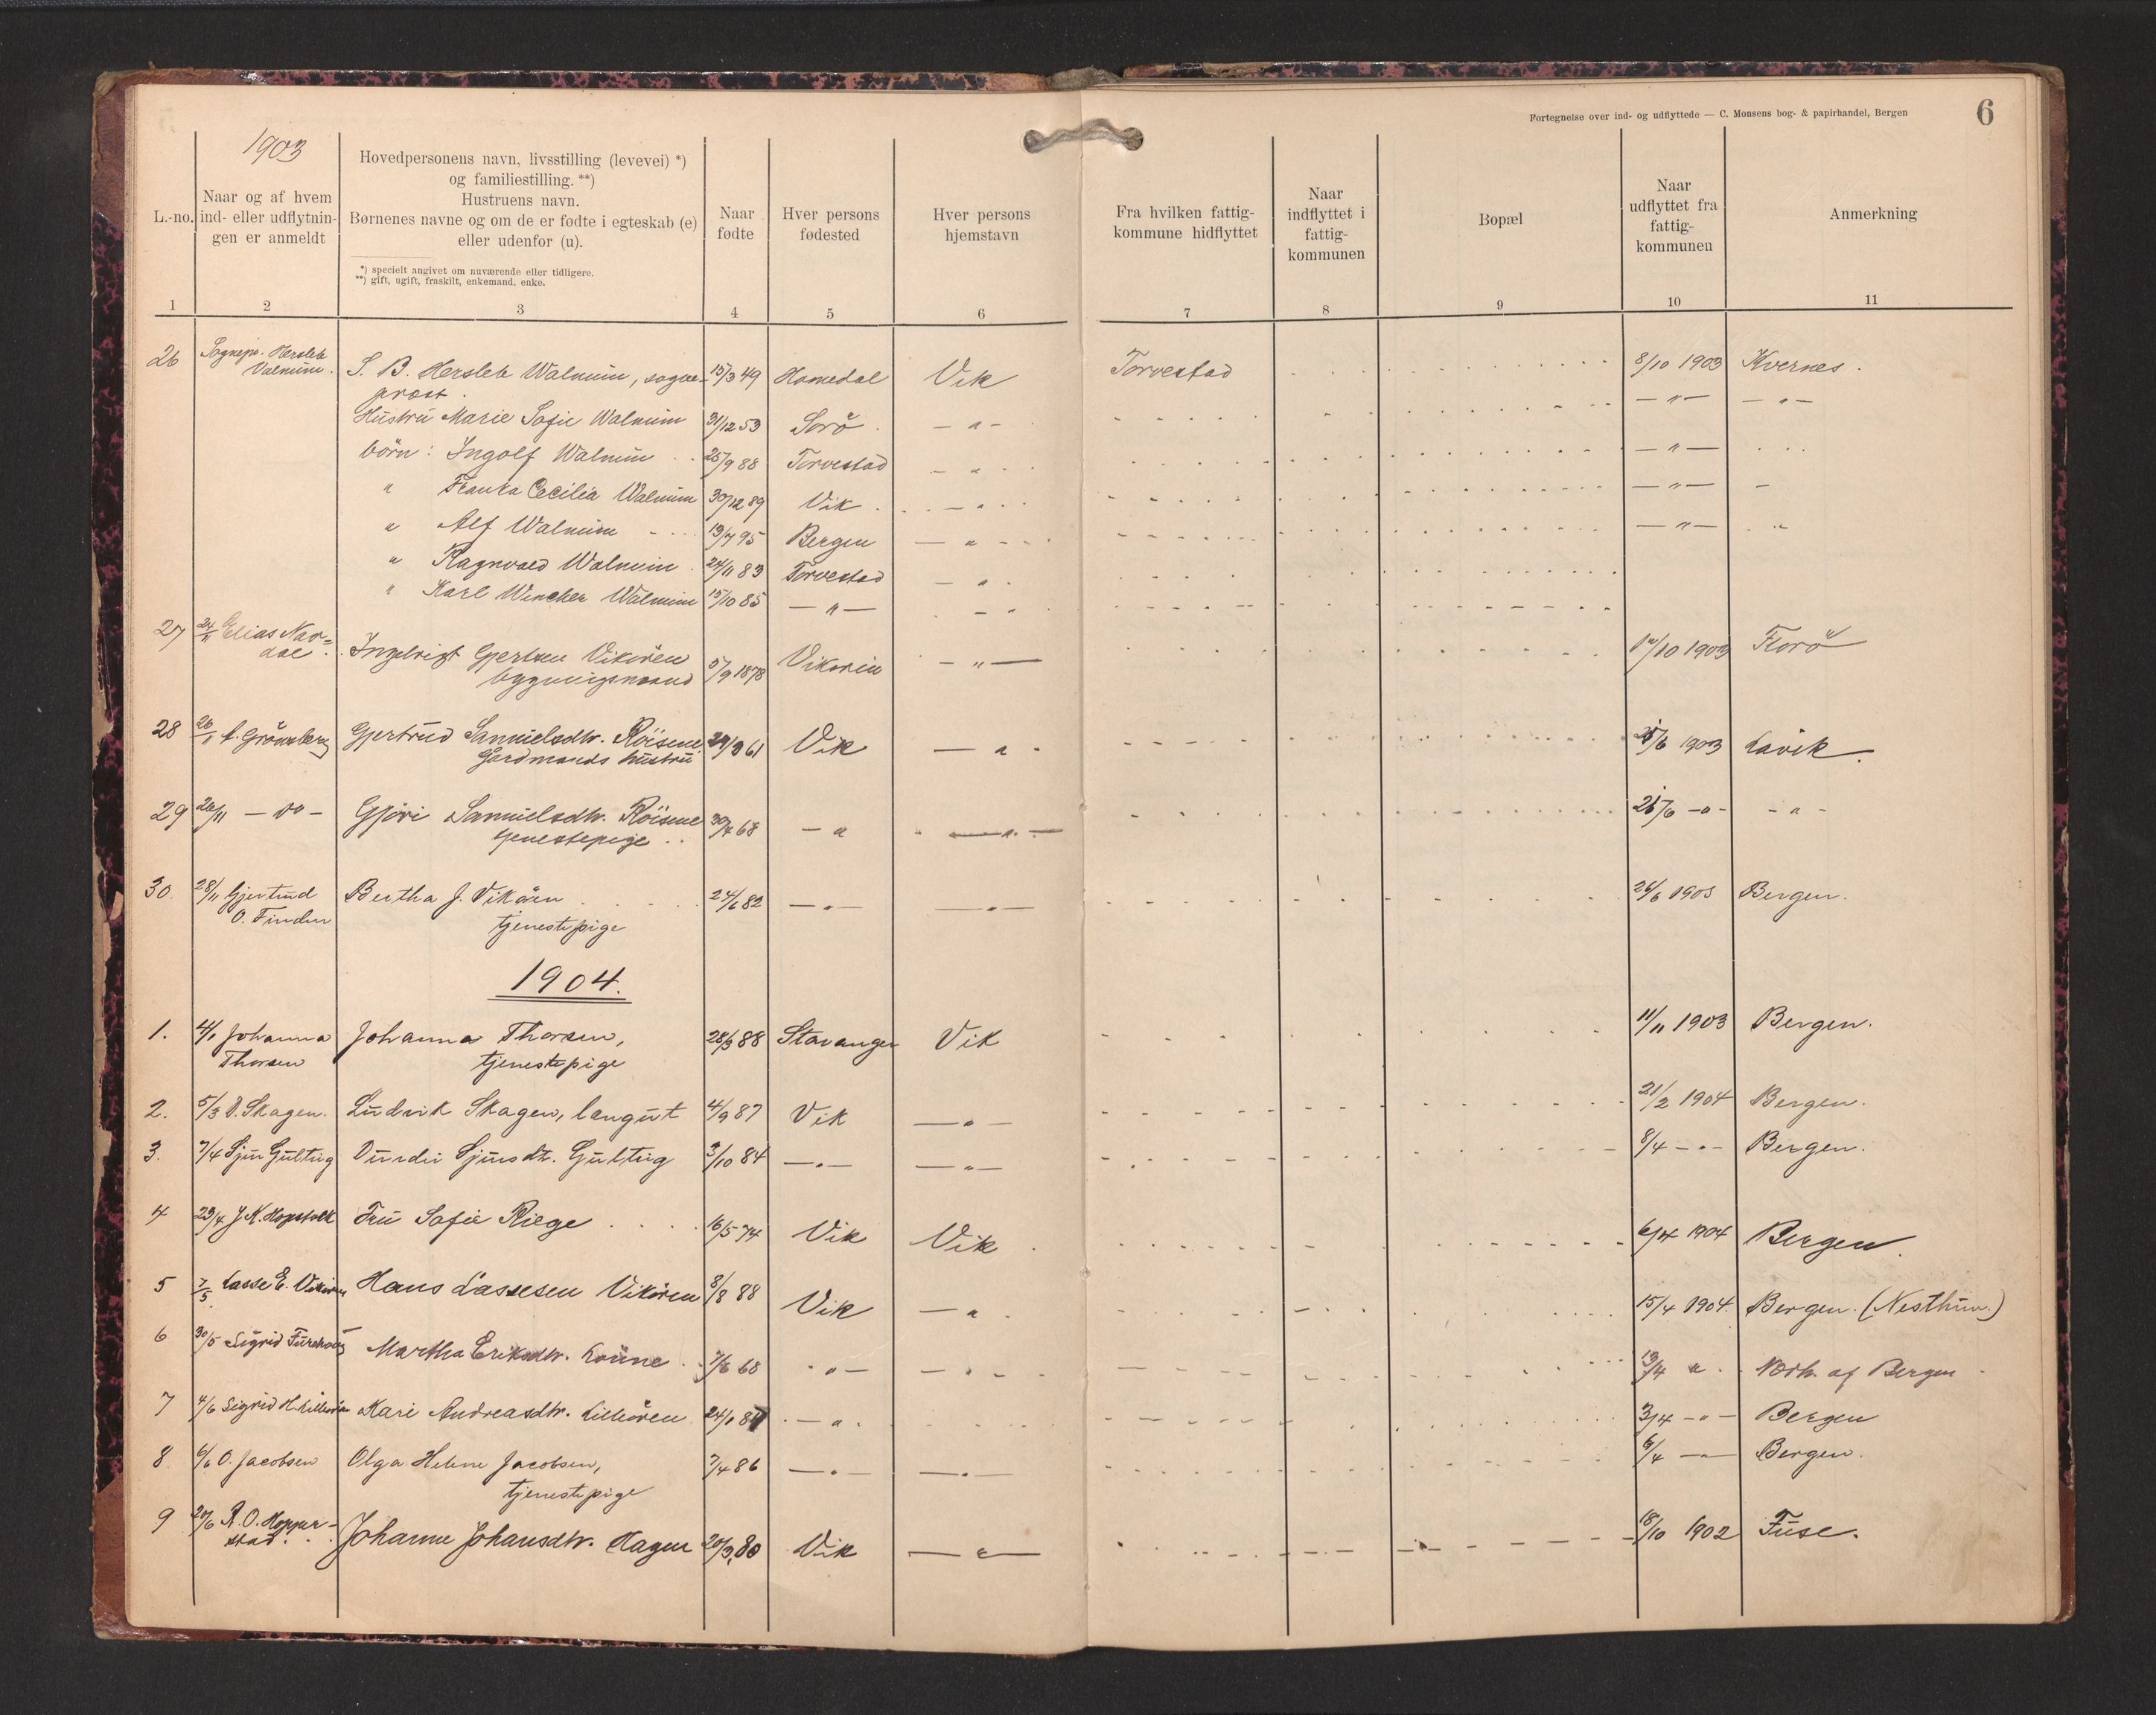 Fortegnelse over ind- og udflyttede — C. Monsens bog- & papirhandel, Bergen
6
1903
L.-no.
Naar og af hvem
ind- eller udflytnin-
gen er anmeldt
Hovedpersonens navn, livsstilling (levevei) *)
og familiestilling. **)
Hustruens navn.
Børnenes navne og om de er fødte i egteskab (e)
eller udenfor (u).
*) specielt angivet om nuværende eller tidligere.
**) gift, ugift, fraskilt, enkemand, enke.
Naar
fødte
Hver persons
fødested
Hver persons
hjemstavn
Fra hvilken fattig-
kommune hidflyttet
Naar
indflyttet i
fattig-
kommunen
Bopæl
Naar
udflyttet fra
fattig-
kommunen
Anmerkning
1 2 3 4 5 6 7 8 9 10 11
26 Sognepr. Hersleb S. B. Hersleb Walnum, sogne- 15/3 49 Homedal Vik Torvestad 8/10 1903 Kvernes.
Walnum. prest.
Hustru Marie Sofie Walnum 31/12 53 Sorö — " — — " — — " —
börn: Ingolf Walnum 25/9 88 Torvestad — " — — " —
" Cecilia Walnum 30/12 89 Vik — " — — " — —
" Alf Walnum 13/7 95 Bergen — " — — " — "
" Ragnvald Walnum 24/11 83 Torvestad — " —
" Karl Wincher Walnum 15/10 85 — " — — " —
27 24/11 Elias Nav= Ingebrigt Gjertsen Vikören 5/9 1878 Vikören — " — /10 1903 Florö
dal. bygningsmand
28 26/11 Grönsberg Gjertrud Samuelsdtr. Röisene 61 Vik — " — /6 1903 Lavik.
Gårdmands hustru
29 26/11 — do — Gjöri Samuelsdtr. Röisene 30/4 68 — " — " — — " — — " —
tjenestepige
30. 28/11 Gjertrud Bertha J. Vikören 24/6 82 — " — — " — 26/6 1903 Bergen.
O. Finden tjenestepige
1904.
1. 4/1 Johanna Johanna Thorsen, 28/3 88 Stavanger Vik 11/11 1903 Bergen.
Thorsen tjenestepige
2. 5/3 Skagen. Ludvik Skagen, læregut 4/9 87 Vik — " — 21/2 1904 Bergen.
3. 7/4 Sjur Gulteig Durdei Sjursdt. Gulteig 3/10 84 — " — — " — 8/4 — " — Bergen.
4 23/4 J. K. Hopstock Fru Sofie Riege 16/5 74 Vik Vik 6/4 1904 Bergen.
5 7/5 Lasse E. Vikören Hans Lassesen Vikören 8/8 88 Vik — " 15/4 1904 Bergen. (Nesthun.)
6 30/5 Sigrid Martha Eriksdtr. 7/6 68 " — — " — 13/4 " Nordh. af Bergen
7 4/6 Sigrid H. Lilleören Kari Andreasdtr. Lilleören 24/1 87 — " 3/4 — " — Bergen
8 6/6 O. Jacobsen Olga Helene Jacobsen, 7/4 86 — " — — " — 6/4 — " — Bergen.
tjenestepige
9 20/6 R. O. Hopper- Johanne Johansdtr. Hagen 20/3 80 Vik — " — 18/10 1902 Fuse.
stad.